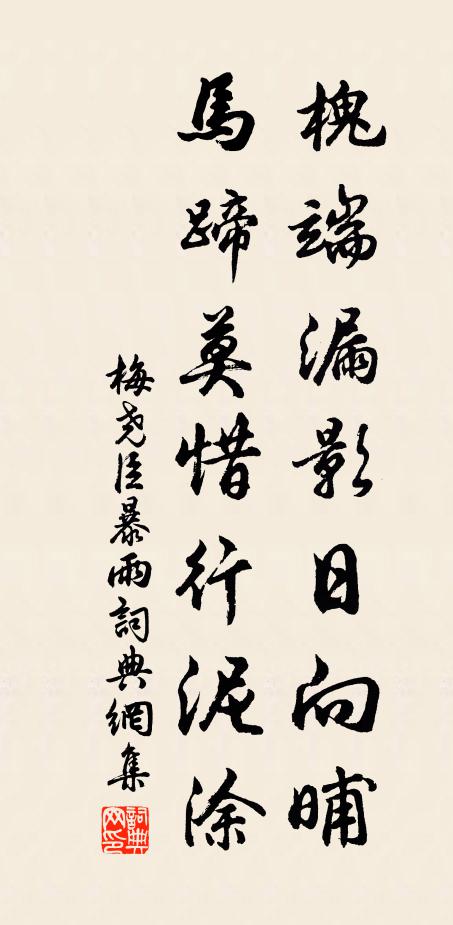 槐端漏影日向晡
馬蹄莫惜行泥涂
梅尧臣暴雨詞典網集
詞典
网印